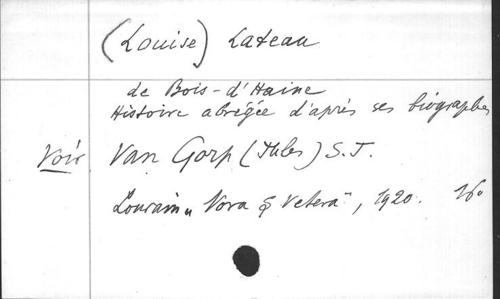 (Louise) Lateau
de Bois-d'Haine
Histoire abrégée d'après ses biographes
Voir Van Gorp (Jules) S.J.
Louvain „Nova & Vetera", 1920. 16°